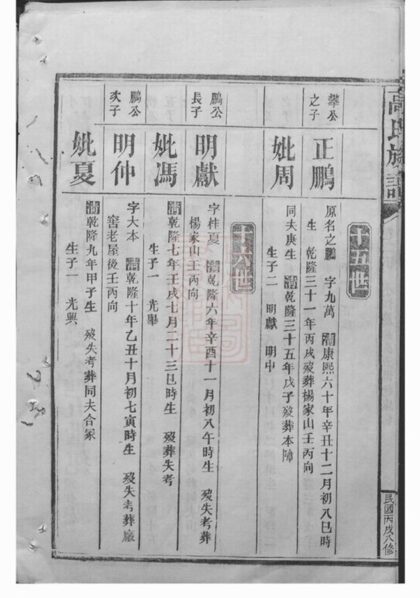 高氏族譜
十五世
攀公之子
正鵬
原名之鵬 字九萬 清康熙六十年辛丑十二月初八巳時
生 乾隆三十一年丙戌歿葬楊家山壬丙向
妣周
同夫庚生 清乾隆三十五年戊子歿葬本陣
生子二 明獻 明中
十六世
鵬公長子
明獻
字桂夏 清乾隆六年辛酉十一月初八午時生 歿失考葬
楊家山壬丙向
妣馮
清乾隆七年壬戌七月二十三巳時生 歿葬失考
生子一 光舉
鵬公次子
明仲
字大本 清乾隆十年乙丑十月初七寅時生 歿失考葬廠
窖老屋後壬丙向
妣夏
清乾隆九年甲子生 歿失考葬同夫合冢
生子一 光興
民國丙戌八修